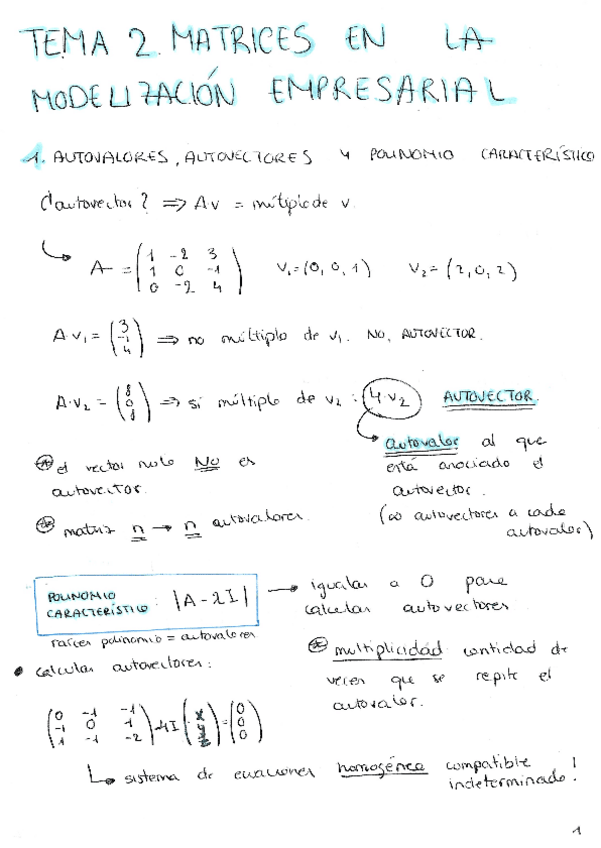 TEMA 2. MATRICES EN LA
MODELIZACIÓN EMPRESARIAL
1. AUTOVALORES, AUTOVECTORES Y POLINOMIO CARACTERÍSTICO
¿autovector? ⇒ Av = múltiplo de v
A = ( 1 -2 3 / 1 0 -1 / 0 -2 4 ) v₁=(0,0,1) v₂=(2,0,2)
A·v₁ = ( 3 / -1 / 4 ) ⇒ no múltiplo de v₁. NO, AUTOVECTOR.
A·v₂ = ( 8 / 0 / 8 ) ⇒ si múltiplo de v₂ : 4·v₂ AUTOVECTOR
autovalor al que
está asociado el
autovector.
(∞ autovectores a cada
autovalor)
* el vector nulo NO es
autovector.
* matriz n → n autovalores.
POLINOMIO
CARACTERÍSTICO : |A - λI| → igualar a 0 para
calcular autovectores
raíces polinomio = autovalores
* multiplicidad cantidad de
veces que se repite el
autovalor.
• calcular autovectores:
( 0 -1 -1 / -1 0 1 / 1 -1 -2 ) -λI ( x / y / z ) = ( 0 / 0 / 0 )
↳ sistema de ecuaciones homogéneo compatible
indeterminado!
1